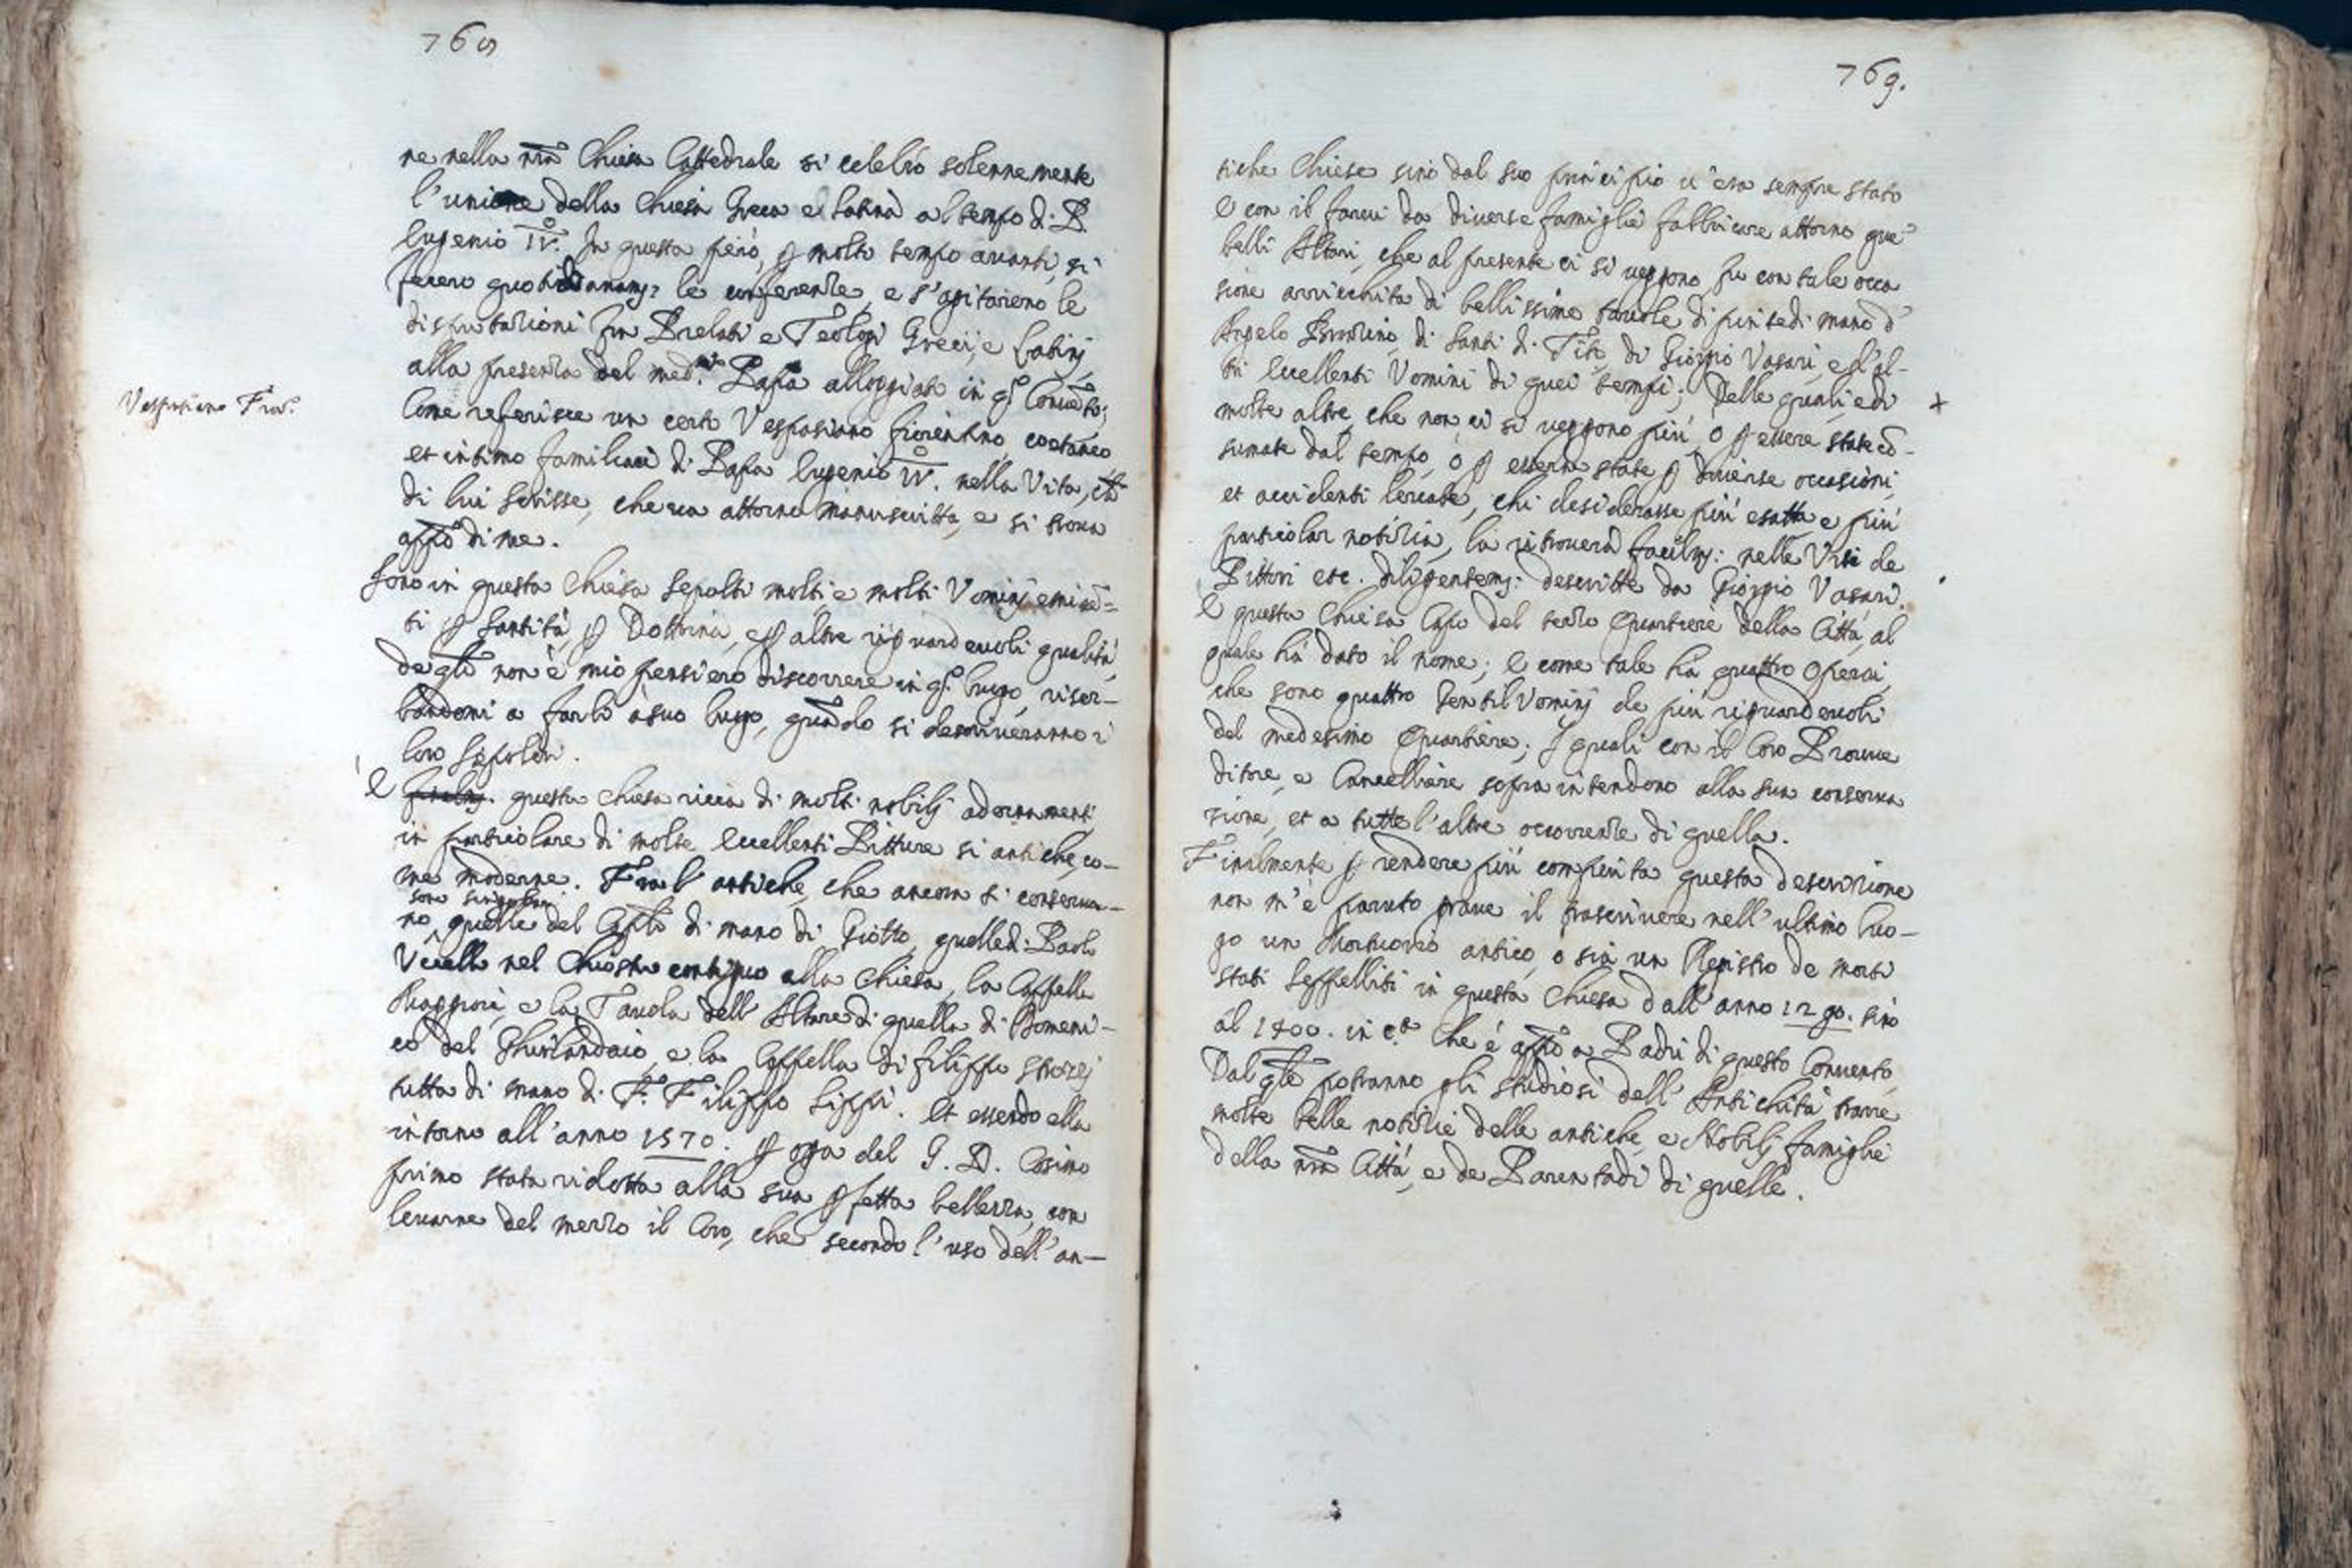 768
ne nella nrã Chiesa Cattedrale si celebrò solennemente
l'unione della Chiesa Greca e Latina al tempo di P.
Eugenio IV.º In questa però, ꝑ molto tempo avanti, si
fecero le conferenze, e s'agitarono le
disputazioni fra Prelati e Teologi Greci, e Latinj
alla presenza del med.mo Papa alloggiato in q.to Convẽto;
Come referisce un certo Vespasiano fiorentino, coetaneo
Vespasiano Fior.º
et intimo familiare di Papa Eugenio IVº. nella Vita, chẽ
di lui scrisse, che va attorno manuscritta, e si trova
app̃o di me.
Sono in questa Chiesa sepolti molti, e molti Vominj eminẽ=
ti ꝑ Santità, ꝑ Dottrina, e ꝑ altre riguardevoli qualità,
de q̃li non è mio pensiero discorrere in q.to luogo, riser-
bandomi a farlo à suo luogo, quãdo si descriveranno i
loro sepolcri.
E questa chiesa ricca di molti nobilj adornamenti
in particolare di molte Eccellenti Pitture si antiche, co-
me moderne. Fra l'antiche, che ancora si conserva-
sono singolari
no, quelle del Cap̃lo di mano di Giotto, quelle di Paolo
Vcello nel Chiostro contiguo alla Chiesa, la Cappella
Maggiore, e la Tavola dell'Altare di quella di Domeni-
co del Ghirlandaio, e la Cappella di filippo Strozzj
tutta di mano di F. Filippo Lippi. Et essendo ella
intorno all'anno 1570. ꝑ opa del G. D. Cosimo
primo stata ridotta alla sua ꝑfetta bellezza, con
levarne del mezzo il Coro, che secondo l'uso dell'an-
769.
tiche Chiese sino dal suo principio v'era sempre stato
e con il farvi da diverse famiglie fabbricare attorno que'
belli Altari, che al presente ci si veggono, fu con tale occa
sione arricchita di bellissime tavole dipinte di mano d'
Angelo Bronzino, di Santi di Tito, di Giorgio Vasari, e d'al-
tri Eccellenti Vomini di quei tempi; Delle quali, e di +
molte altre, che non ci si veggono più, o ꝑ essere state cõ-
sumate dal tempo, o ꝑ esserne state ꝑ diverse occasioni,
et accidenti levate, chi desiderasse più esatta e più
particolar notizia, la ritroverà facilm: nelle Vite de
Pittori etc. diligentem: descritte da Giorgio Vasari.
E questa Chiesa Capo del terzo Quartiere della Città, al
quale hà dato il nome; e come tale hà quattro Operai,
che sono quattro Gentil'Vominj de più riguardevoli
del medesimo Quartiere; I quali con il loro Provve
ditore, e Cancelliere sopra intendono alla sua conserva
zione, et a tutte l'altre occorrenze di quella.
Finalmente ꝑ rendere più compiuta questa descrizione
non m'è paruto grave il trascrivere nell'ultimo luo-
go un Mortuorio antico, o sia un Registro de morti
stati Seppelliti in questa Chiesa dall'anno 1290. sino
al 1400. in c.a che è app̃o a Padri di questo Convento,
Dal q̃le potranno gli studiosi dell'Antichità trarre
molte belle notizie delle antiche, e Nobilj famiglie
della nrã Città, e de Parentadi di quelle.